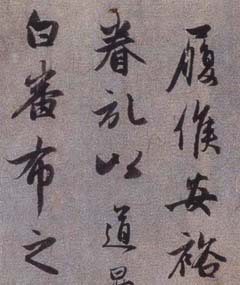 履候安裕
眷以道
白番布之